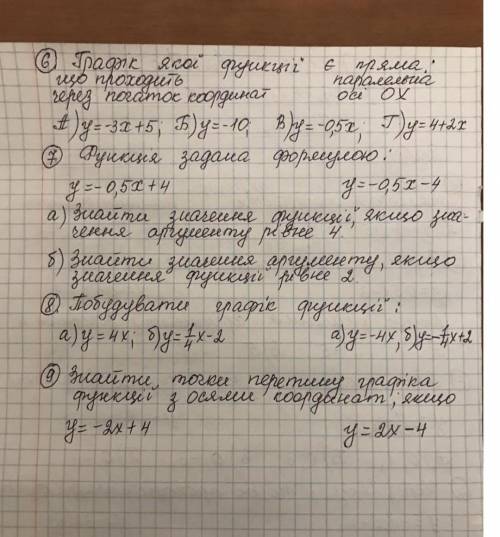 ⑥ Графік якої функції є пряма:
що проходить паралельна
через початок координат осі OX
А) y=-3x+5; Б) y=-10; В) y=-0,5x; Г) y=4+2x
⑦ Функція задана формулою:
y=-0,5x+4 y=-0,5x-4
а) Знайти значення функції, якщо зна-
чення аргументу рівне 4
б) Знайти значення аргументу, якщо
значення функції рівне 2
⑧ Побудувати графік функції:
а) y=4x; б) y=1/4x-2 а) y=-4x, б) y=-1/4x+2
⑨ Знайти точки перетину графіка
функції з осями координат, якщо
y=-2x+4 y=2x-4